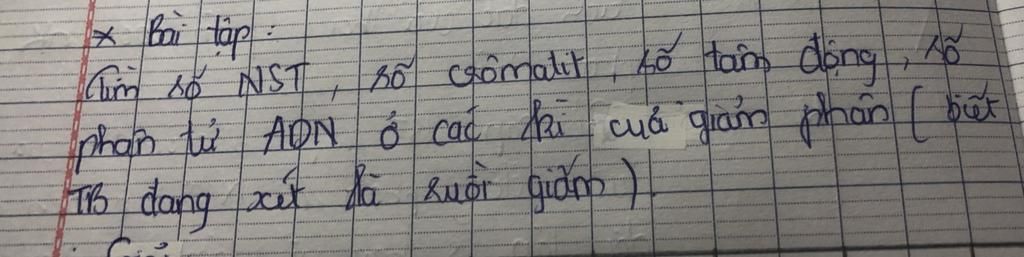 x Bài tập:
Tìm số NST, số crômatit, số tâm động, số
phân tử ADN ở các kì của giảm phân (biết
TB đang xét là ruồi giấm)